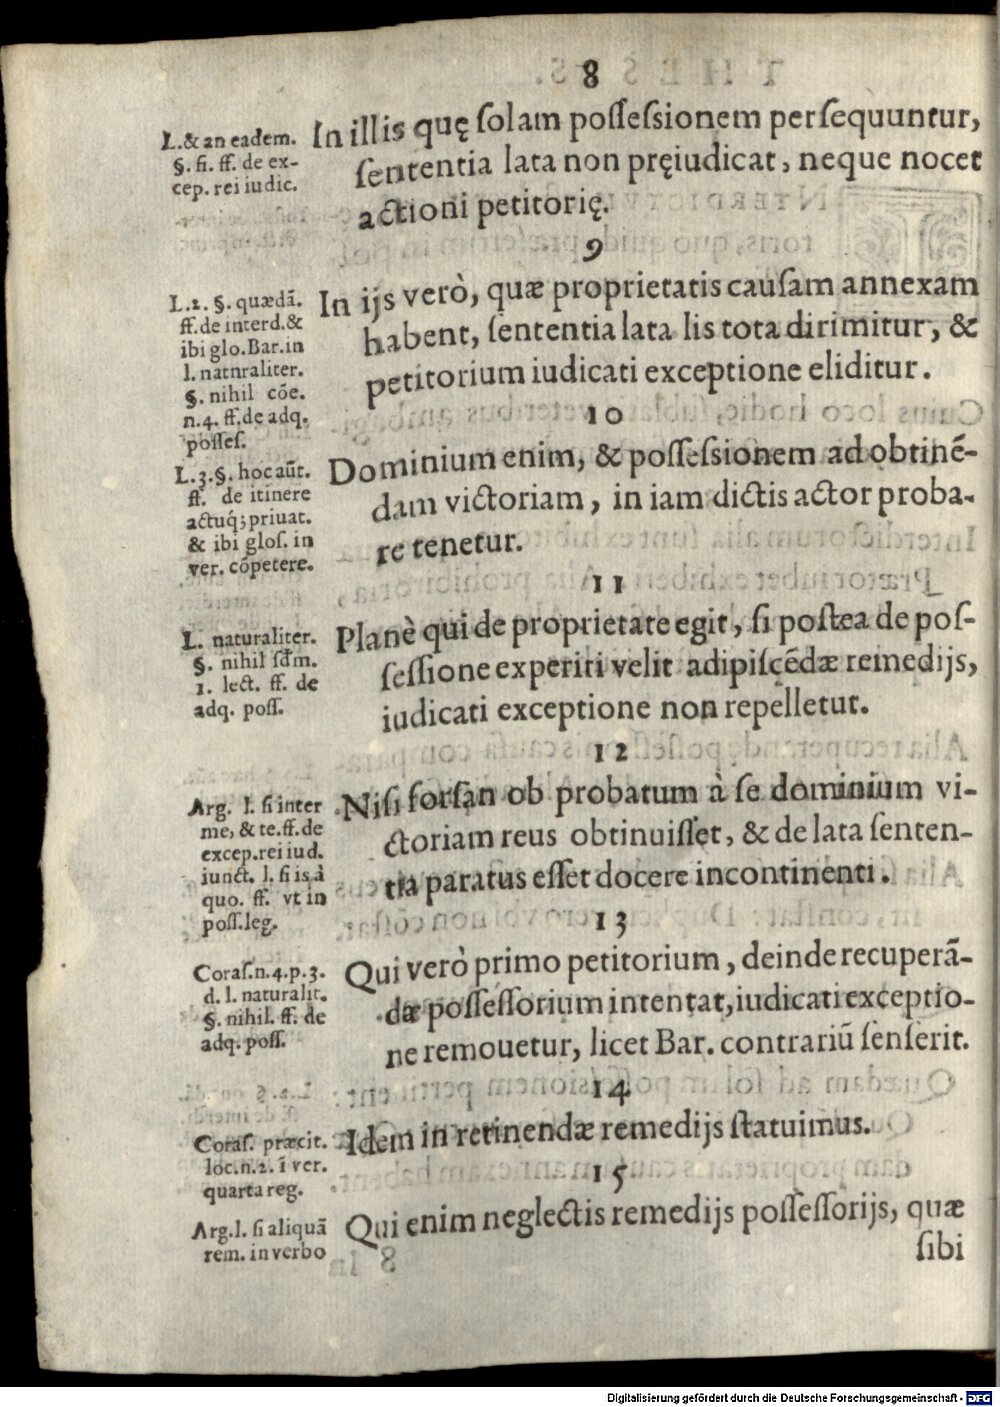 8
L.& an eadem.
§. fi. ff. de ex-
cep. rei iudic.
In illis quę ſolam poſſeſsionem perſequuntur,
ſententia lata non pręiudicat, neque nocet
actioni petitorię.
9
L.2. §. quædā.
ff.de interd.&
ibi glo.Bar.in
l. natnraliter.
§. nihil cōe.
n.4. ff.de adq.
poſſeſ.
In ijs verò, quæ proprietatis cauſam annexam
habent, ſententia lata lis tota dirimitur, &
petitorium iudicati exceptione eliditur.
10
L.3.§. hoc aūt.
ff. de itinere
actuq́; priuat.
& ibi gloſ. in
ver. cōpetere.
Dominium enim, & poſſeſsionem ad obtinē-
dam victoriam, in iam dictis actor proba-
re tenetur.
11
L. naturaliter.
§. nihil ſđm.
1. lect. ff. de
adq. poſſ.
Planè qui de proprietate egit, ſi poſtea de poſ-
ſeſſione experiri velit adipiſcēdæ remedijs,
iudicati exceptione non repelletut.
12
Arg. l. ſi inter
me, & te.ff.de
excep.rei iud.
iunct. l. ſi is à
quo. ff. vt in
poſſ.leg.
Niſi forſan ob probatum à ſe dominium vi-
ctoriam reus obtinuiſſet, & de lata ſenten-
tia paratus eſſet docere incontinenti.
13
Coraſ.n.4.p.3.
d. l. naturalit.
§. nihil. ff. de
adq. poſſ.
Qui verò primo petitorium, deinde recuperā-
dæ poſſeſſorium intentat, iudicati exceptio-
ne remouetur, licet Bar. contrariū ſenſerit.
14
Coraſ. præcit.
loc.n.2. ī ver.
quarta reg.
Idem in retinendæ remedijs ſtatuimus.
15
Arg.l. ſi aliquā
rem. in verbo
Qui enim neglectis remedijs poſſeſſorijs, quæ
ſibi
Digitalisierung gefördert durch die Deutsche Forschungsgemeinschaft - DFG